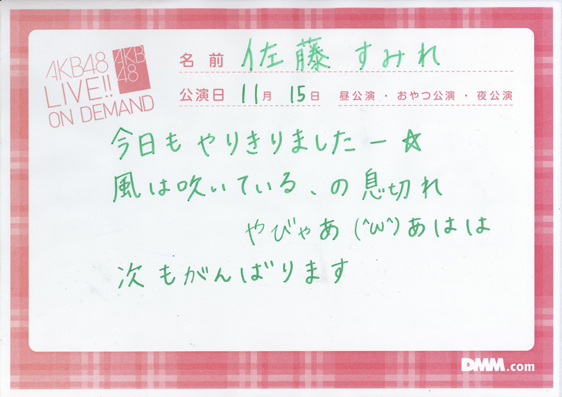 AKB48
LIVE!!
ON DEMAND
AKB
48
名前 佐藤 すみれ
公演日 11月 15日 昼公演・おやつ公演・夜公演
今日もやりきりましたー☆
風は吹いている、の息切れ
やびゃあ (^ω^) あはは
次もがんばります
DMM.com